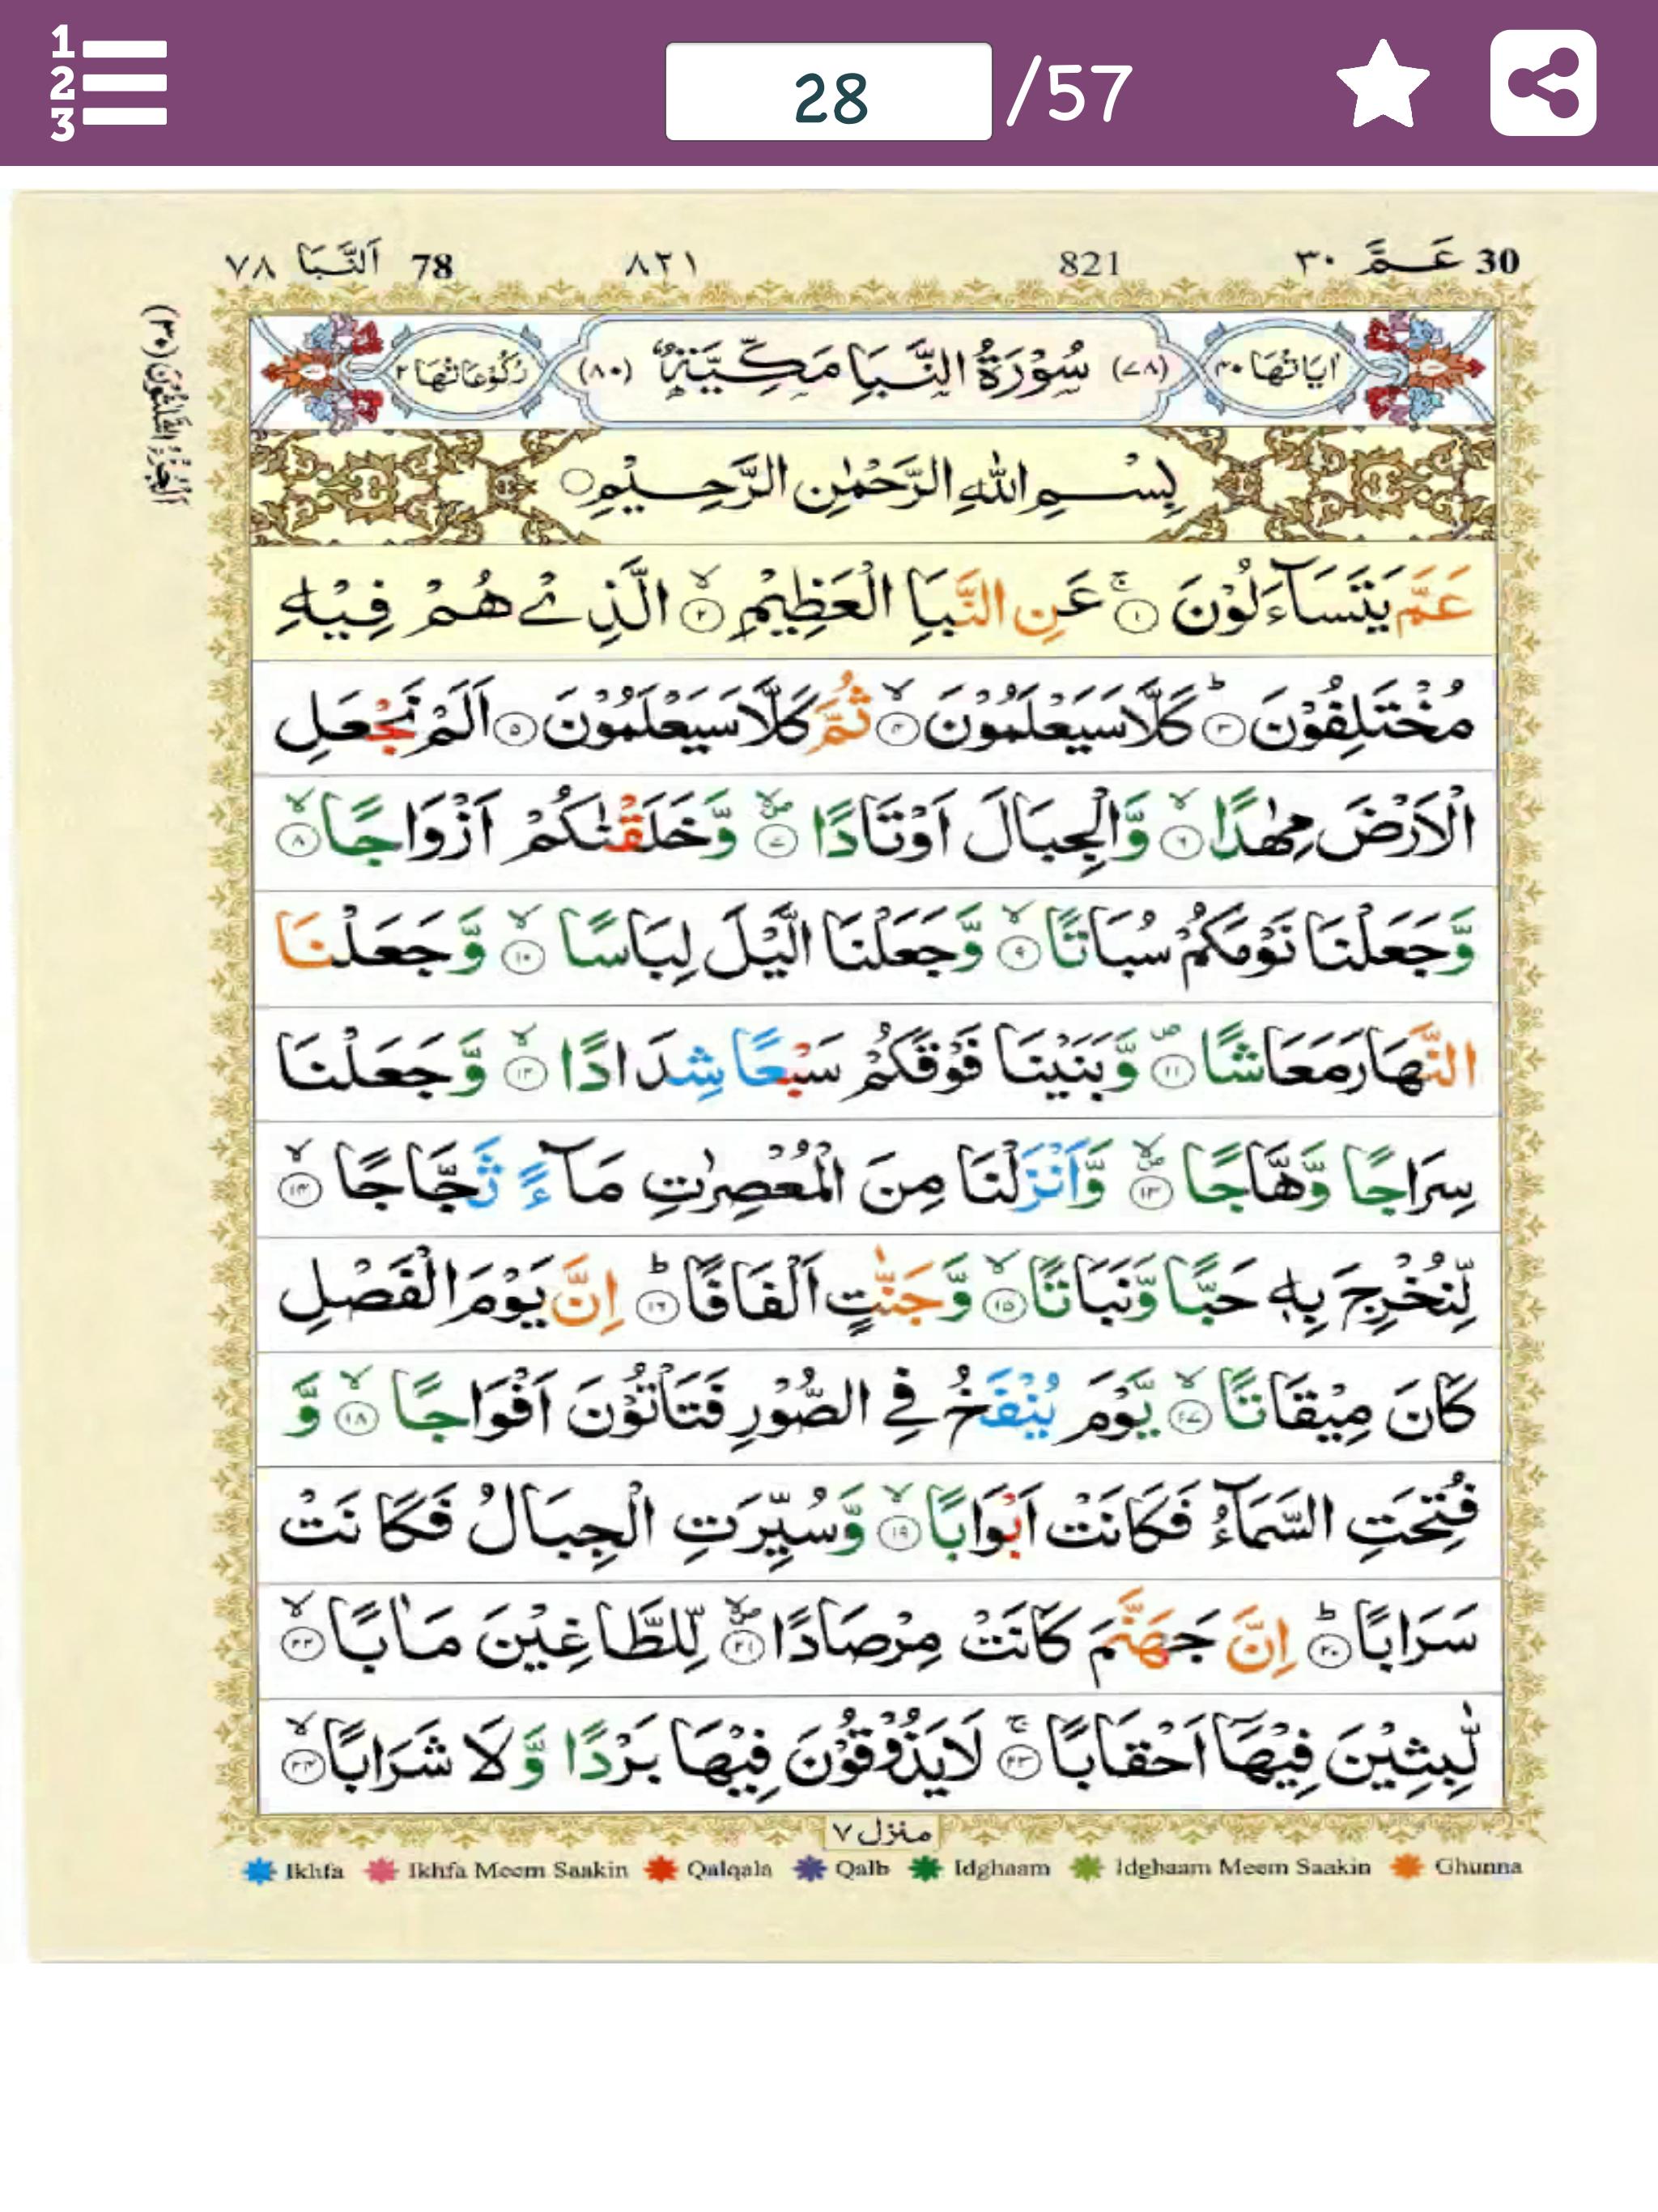 1
2
3
28 /57
30 عَـمَّ ٣٠ 821 ٨٢١ 78 اَلنَّبَا ٧٨
اٰيَاتُهَا ٤٠ (٧٨) سُوْرَةُ النَّبَاِ مَكِّيَّةٌ (٨٠) رُكُوْعَاتُهَا ٢
اَلْجُزْءُ الثَّلٰثُوْنَ (٣٠)
بِسْمِ اللّٰهِ الرَّحْمٰنِ الرَّحِيْمِ
عَمَّ يَتَسَآءَلُوْنَ ۚ ١ عَنِ النَّبَاِ الْعَظِيْمِ ۙ ٢ الَّذِىْ هُمْ فِيْهِ
مُخْتَلِفُوْنَ ؕ ٣ كَلَّا سَيَعْلَمُوْنَ ۙ ٤ ثُمَّ كَلَّا سَيَعْلَمُوْنَ ٥ اَلَمْ نَجْعَلِ
الْاَرْضَ مِهٰدًا ۙ ٦ وَّالْجِبَالَ اَوْتَادًا ۪ۙ ٧ وَّخَلَقْنٰكُمْ اَزْوَاجًا ۙ ٨
وَّجَعَلْنَا نَوْمَكُمْ سُبَاتًا ۙ ٩ وَّجَعَلْنَا الَّيْلَ لِبَاسًا ۙ ١٠ وَّجَعَلْنَا
النَّهَارَ مَعَاشًا ۪ ١١ وَّبَنَيْنَا فَوْقَكُمْ سَبْعًا شِدَادًا ۙ ١٢ وَّجَعَلْنَا
سِرَاجًا وَّهَّاجًا ۪ۙ ١٣ وَّاَنْزَلْنَا مِنَ الْمُعْصِرٰتِ مَآءً ثَجَّاجًا ۙ ١٤
لِّنُخْرِجَ بِهٖ حَبًّا وَّنَبَاتًا ۙ ١٥ وَّجَنّٰتٍ اَلْفَافًا ؕ ١٦ اِنَّ يَوْمَ الْفَصْلِ
كَانَ مِيْقَاتًا ۙ ١٧ يَّوْمَ يُنْفَخُ فِى الصُّوْرِ فَتَاْتُوْنَ اَفْوَاجًا ۙ ١٨ وَّ
فُتِحَتِ السَّمَآءُ فَكَانَتْ اَبْوَابًا ۙ ١٩ وَّسُيِّرَتِ الْجِبَالُ فَكَانَتْ
سَرَابًا ؕ ٢٠ اِنَّ جَهَنَّمَ كَانَتْ مِرْصَادًا ۪ۙ ٢١ لِّلطَّاغِيْنَ مَاٰبًا ۙ ٢٢
لّٰبِثِيْنَ فِيْهَآ اَحْقَابًا ۚ ٢٣ لَا يَذُوْقُوْنَ فِيْهَا بَرْدًا وَّلَا شَرَابًا ۙ ٢٤
منزل ٧
Ikhfa Ikhfa Meem Saakin Qalqala Qalb Idghaam Idghaam Meem Saakin Ghunna